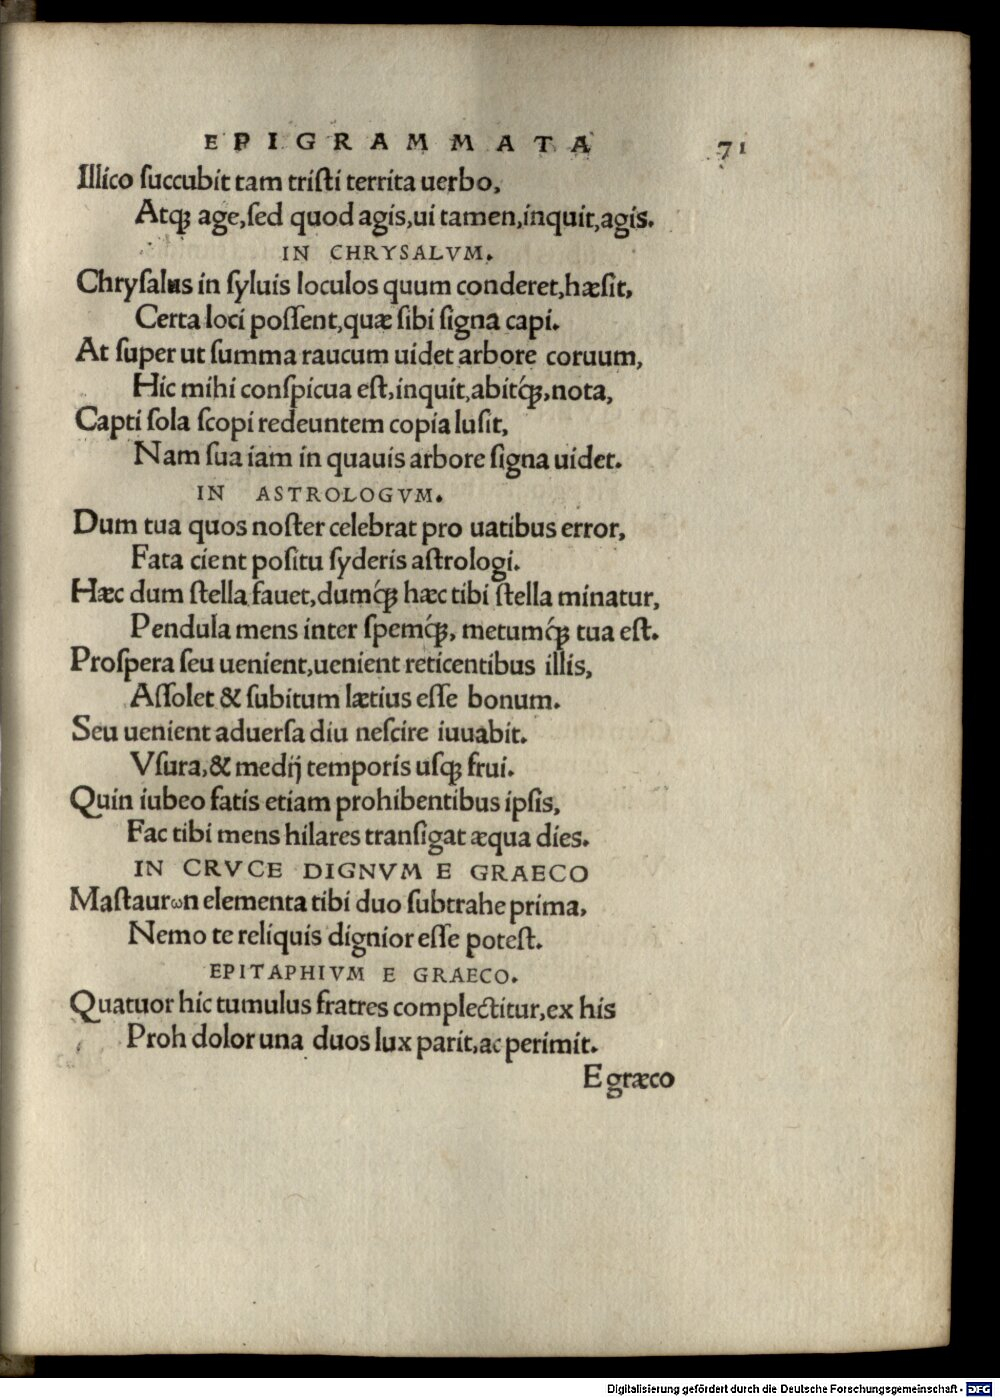 EPIGRAMMATA 71
Illico succubit tam tristi territa uerbo,
Atqꝫ age, sed quod agis, ui tamen, inquit, agis.
IN CHRYSALVM.
Chrysalus in syluis loculos quum conderet, hæsit,
Certa loci possent, quæ sibi signa capi.
At super ut summa raucum uidet arbore coruum,
Hic mihi conspicua est, inquit, abitq́ꝫ, nota,
Capti sola scopi redeuntem copia lusit,
Nam sua iam in quauis arbore signa uidet.
IN ASTROLOGVM.
Dum tua quos noster celebrat pro uatibus error,
Fata cient positu syderis astrologi.
Hæc dum stella fauet, dumq́ꝫ hæc tibi stella minatur,
Pendula mens inter spemq́ꝫ, metumq́ꝫ tua est.
Prospera seu uenient, uenient reticentibus illis,
Assolet & subitum lætius esse bonum.
Seu uenient aduersa diu nescire iuuabit.
Vsura, & medij temporis usqꝫ frui.
Quin iubeo fatis etiam prohibentibus ipsis,
Fac tibi mens hilares transigat æqua dies.
IN CRVCE DIGNVM E GRAECO
Mastaurωn elementa tibi duo subtrahe prima,
Nemo te reliquis dignior esse potest.
EPITAPHIVM E GRAECO.
Quatuor hic tumulus fratres complectitur, ex his
Proh dolor una duos lux parit, ac perimit.
E græco
Digitalisierung gefördert durch die Deutsche Forschungsgemeinschaft - DFG